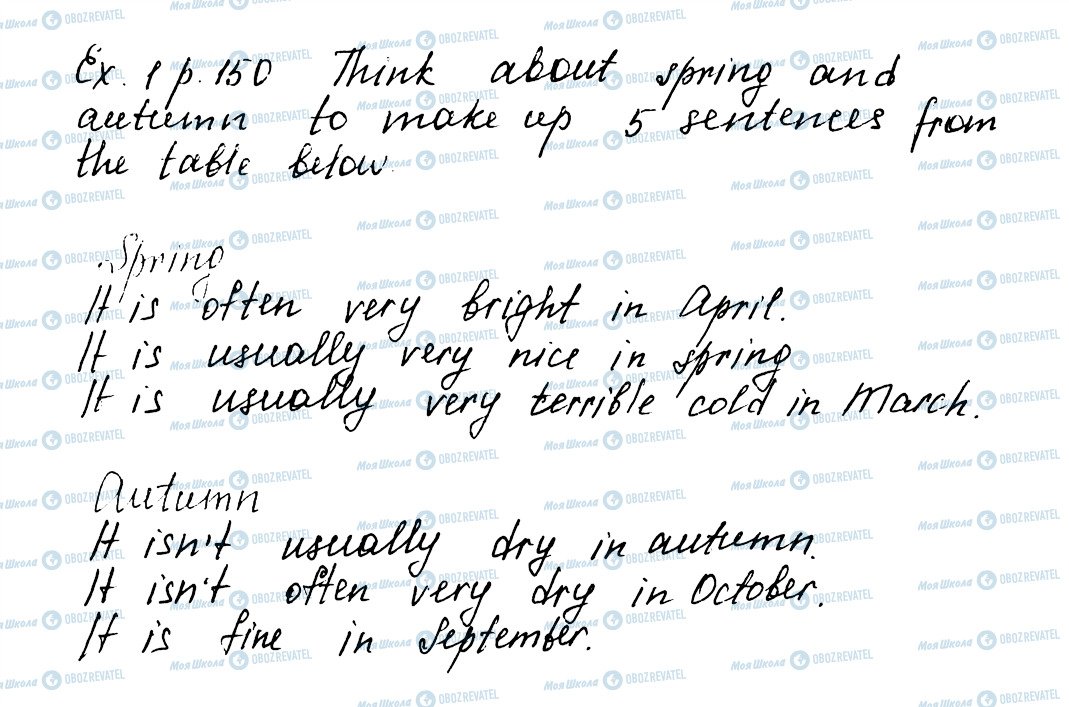 Ex. 1 p. 150 Think about spring and
autumn to make up 5 sentences from
the table below.
Spring
It is often very bright in April.
It is usually very nice in spring
It is usually very terrible cold in March.
Autumn
It isn't usually dry in autumn.
It isn't often very dry in October.
It is fine in September.